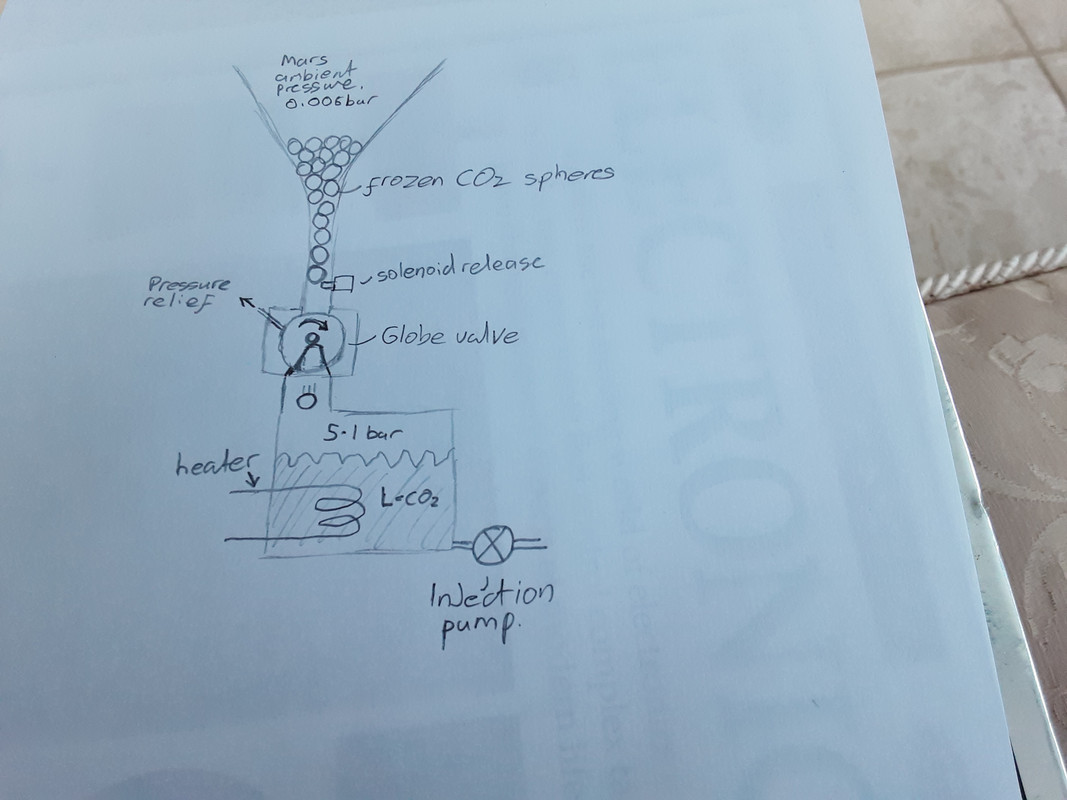 Mars
ambient
pressure.
0.006bar
frozen CO2 spheres
solenoid release
Pressure
relief
Globe valve
5.1 bar
heater
L-CO2
Injection
pump.